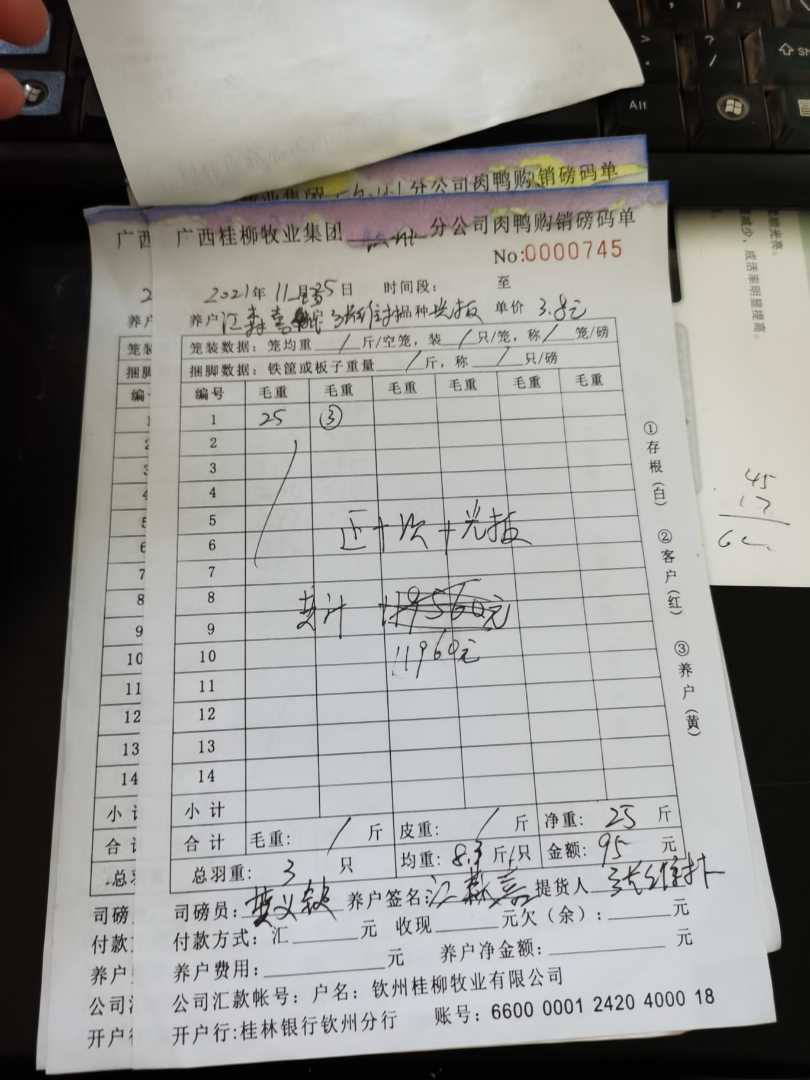 Alt
业集团 分公司肉鸭购销磅码单
广西桂柳牧业集团 分公司肉鸭购销磅码单
No:0000745
2021年11月25日 时间段: 至
养户 江森喜 品种 光报 单价 3.8元
笼装数据: 笼均重 / 斤/空笼, 装 / 只/笼, 称 / 笼/磅
捆脚数据: 铁筐或板子重量 / 斤, 称 / 只/磅
编号 毛重 毛重 毛重 毛重 毛重 毛重
1 25 ③
2
3
4
5
6
7
8
9
10
11
12
13
14
正十次+光报
共计 119560元
11960元
小计
合计 毛重: / 斤 皮重: / 斤 净重: 25 斤
总羽重: 3 只 均重: 8.3 斤/只 金额: 95 元
司磅员: 养户签名: 江森喜 提货人 张维扑
付款方式: 汇 元 收现 元欠(余): 元
养户费用: 元 养户净金额: 元
公司汇款帐号: 户名: 钦州桂柳牧业有限公司
开户行:桂林银行钦州分行 账号: 6600 0001 2420 4000 18
①存根(白) ②客户(红) ③养户(黄)
广西
养户
笼装
捆脚
编
小计
合计
总羽
司磅
付款
养户
公司
开户行
减少, 成活率明显提高。
45
17